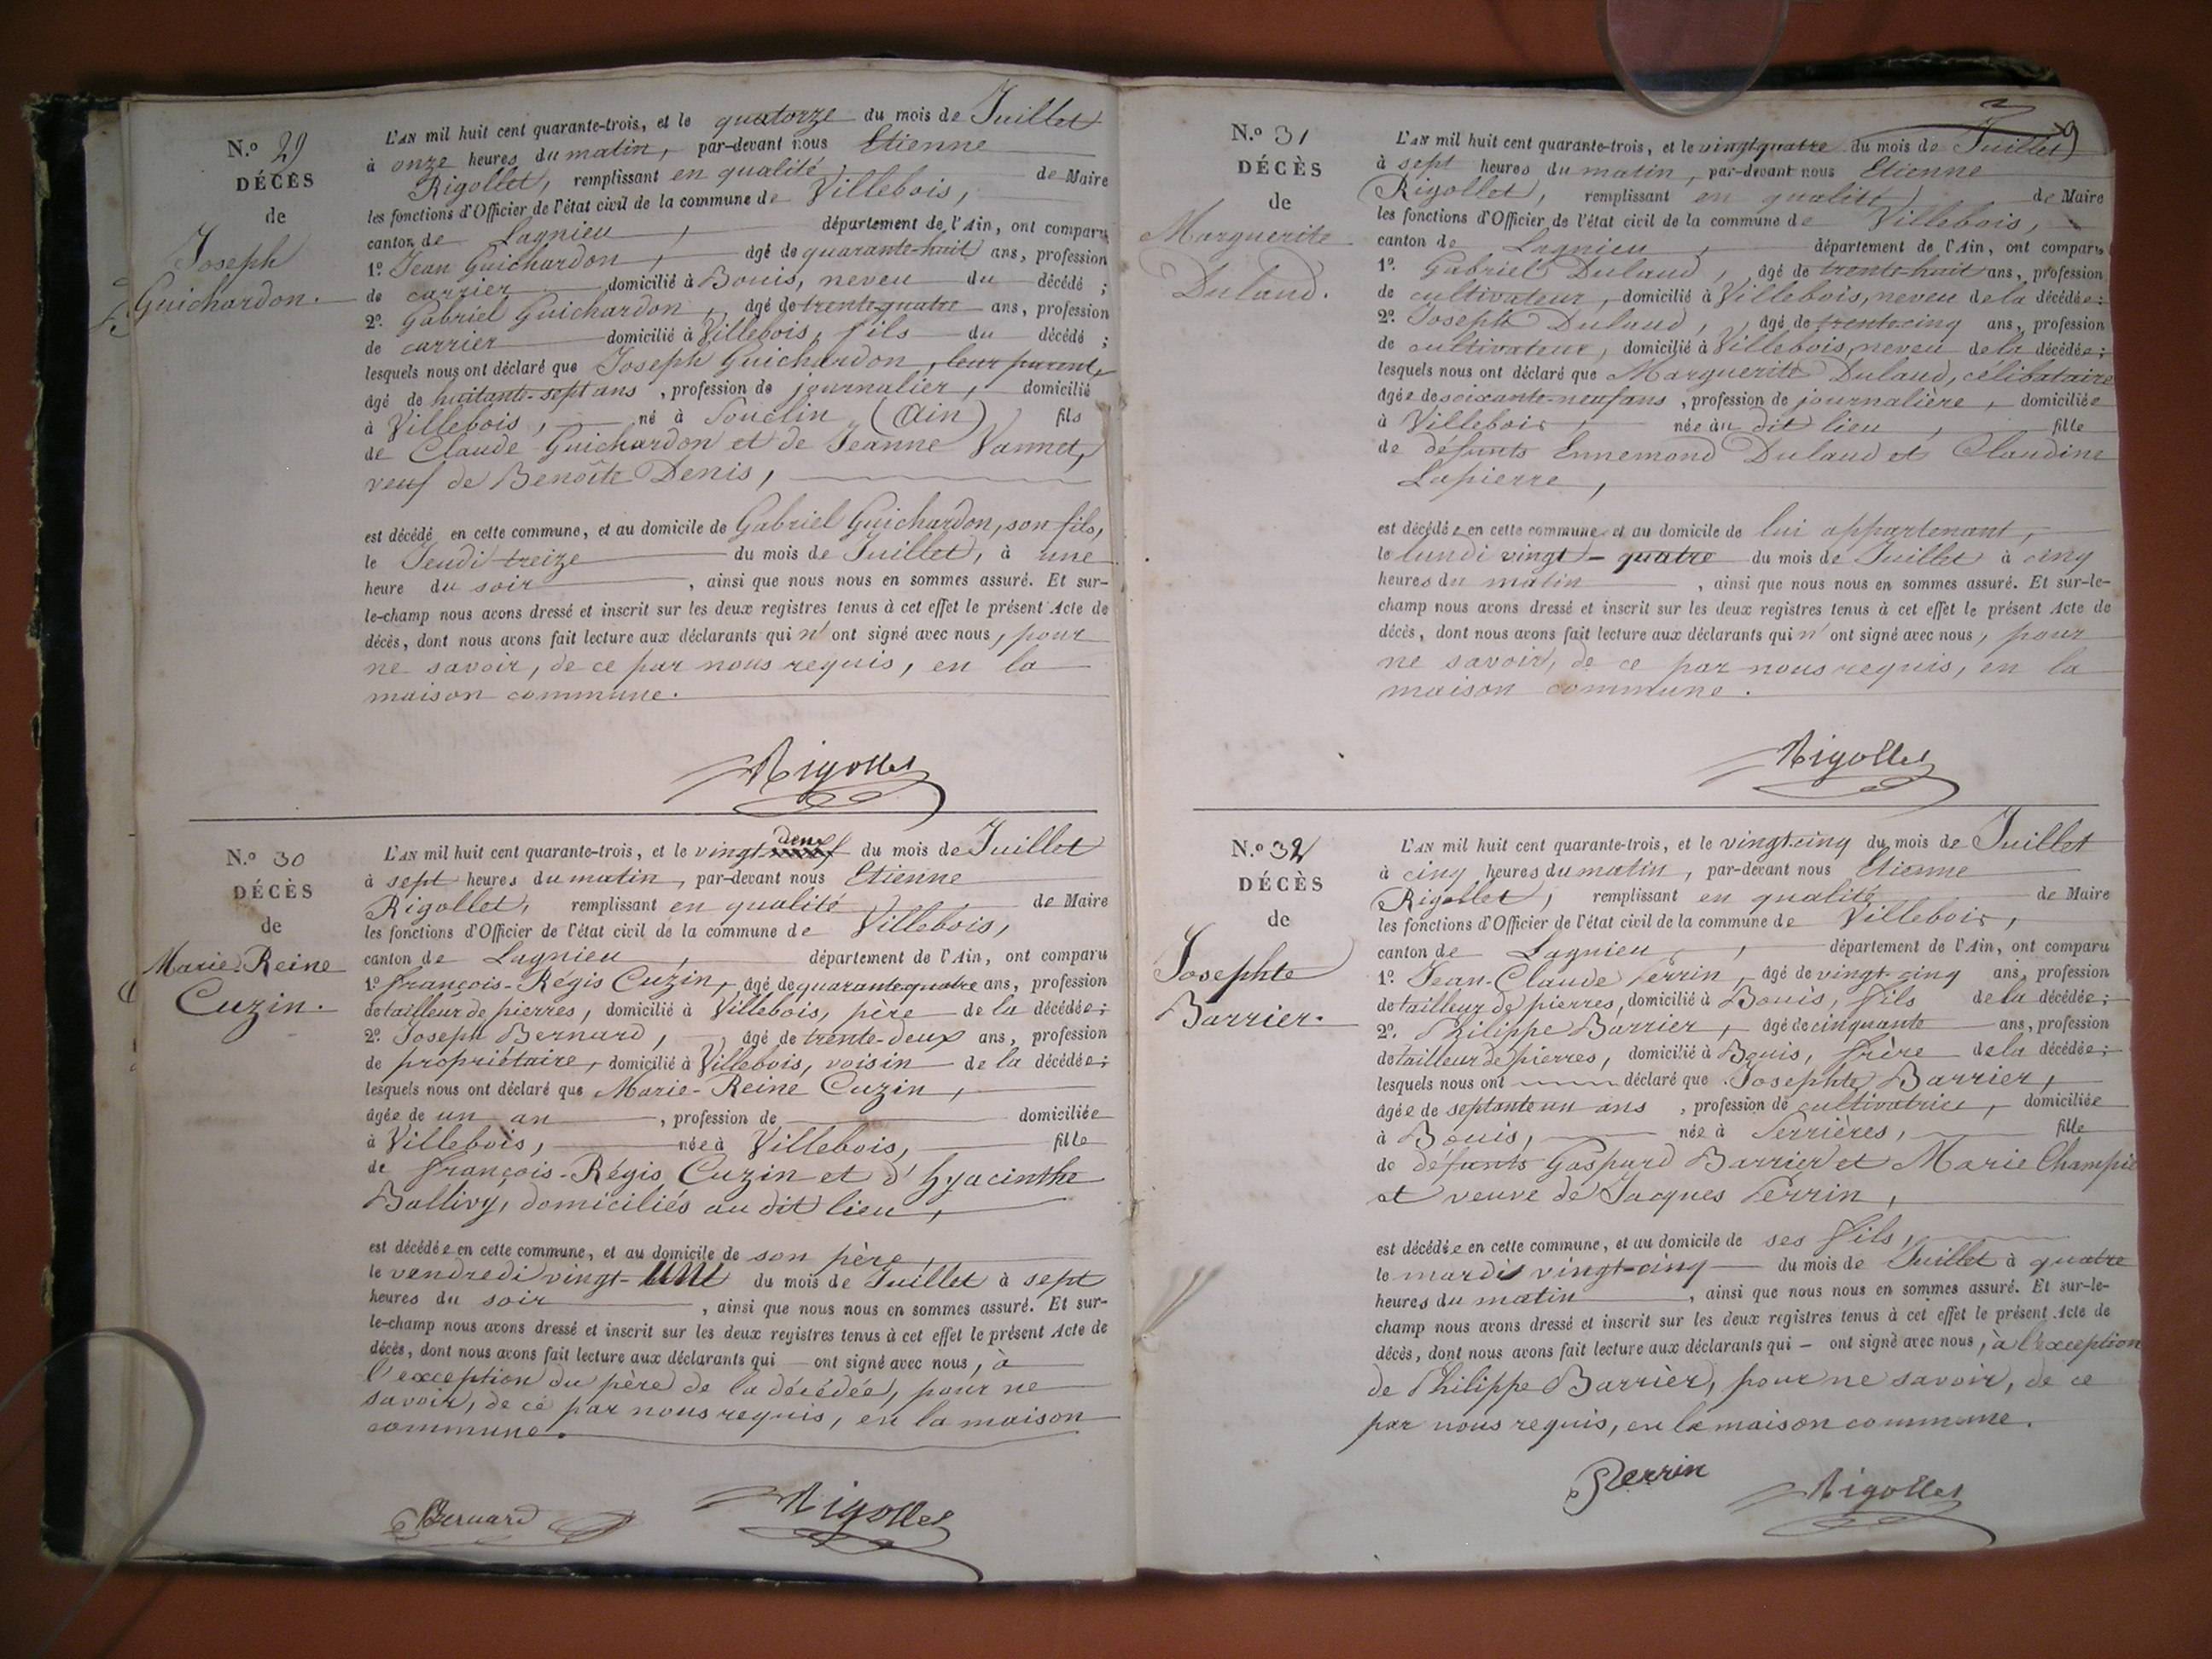 N.º 29
DÉCÈS
de
Joseph
Guichardon.
L'AN mil huit cent quarante-trois, et le quatorze du mois de Juillet
à onze heures du matin, par-devant nous Etienne
Rigollet, remplissant en qualité de Maire
les fonctions d'Officier de l'état civil de la commune de Villebois,
canton de Lagnieu, département de l'Ain, ont comparu
1º. Jean Guichardon, âgé de quarante-huit ans, profession
de carrier domicilié à Bouis, neveu du décédé ;
2º. Gabriel Guichardon, âgé de trente-quatre ans, profession
de carrier domicilié à Villebois, fils du décédé ;
lesquels nous ont déclaré que Joseph Guichardon, leur parent,
âgé de huitante-sept ans, profession de journalier, domicilié
à Villebois, né à Souclin (Ain) fils
de Claude Guichardon et de Jeanne Vannet,
veuf de Benoîte Denis,
est décédé en cette commune, et au domicile de Gabriel Guichardon, son fils,
le Jeudi treize du mois de Juillet, à une
heure du soir, ainsi que nous nous en sommes assuré. Et sur-
le-champ nous avons dressé et inscrit sur les deux registres tenus à cet effet le présent Acte de
décès, dont nous avons fait lecture aux déclarants qui n'ont signé avec nous, pour
ne savoir, de ce par nous requis, en la
maison commune.
Rigollet
N.º 30
DÉCÈS
de
Marie-Reine
Cuzin.
L'AN mil huit cent quarante-trois, et le vingt deux du mois de Juillet
à sept heures du matin, par-devant nous Etienne
Rigollet, remplissant en qualité de Maire
les fonctions d'Officier de l'état civil de la commune de Villebois,
canton de Lagnieu, département de l'Ain, ont comparu
1º. François-Régis Cuzin, âgé de quarante quatre ans, profession
de tailleur de pierres, domicilié à Villebois, père de la décédée ;
2º. Joseph Bernard, âgé de trente-deux ans, profession
de propriétaire, domicilié à Villebois, voisin de la décédée ;
lesquels nous ont déclaré que Marie-Reine Cuzin,
âgée de un an, profession de domiciliée
à Villebois, née à Villebois, fille
de François-Régis Cuzin et d'hyacinthe
Ballivy, domiciliés au dit lieu,
est décédée en cette commune, et au domicile de son père,
le vendredi vingt- du mois de Juillet à sept
heures du soir, ainsi que nous nous en sommes assuré. Et sur-
le-champ nous avons dressé et inscrit sur les deux registres tenus à cet effet le présent Acte de
décès, dont nous avons fait lecture aux déclarants qui ont signé avec nous, à
l'exception du père de la décédée, pour ne
savoir, de ce par nous requis, en la maison
commune.
Bernard
Rigollet
N.º 31
DÉCÈS
de
Marguerite
Dulaud.
L'AN mil huit cent quarante-trois, et le vingt quatre du mois de Juillet
à sept heures du matin, par-devant nous Etienne
Rigollet, remplissant en qualité de Maire
les fonctions d'Officier de l'état civil de la commune de Villebois,
canton de Lagnieu, département de l'Ain, ont comparu
1º. Gabriel Dulaud, âgé de trente-huit ans, profession
de cultivateur, domicilié à Villebois, neveu de la décédée ;
2º. Joseph Dulaud, âgé de trente-cinq ans, profession
de cultivateur, domicilié à Villebois, neveu de la décédée ;
lesquels nous ont déclaré que Marguerite Dulaud, célibataire
âgée de soixante-neuf ans, profession de journalière, domiciliée
à Villebois, née au dit lieu, fille
de défunts Ennemond Dulaud et Claudine
Lapierre,
est décédée en cette commune et au domicile de lui appartenant,
le lundi vingt-quatre du mois de Juillet à cinq
heures du matin, ainsi que nous nous en sommes assuré. Et sur-le-
champ nous avons dressé et inscrit sur les deux registres tenus à cet effet le présent Acte de
décès, dont nous avons fait lecture aux déclarants qui n'ont signé avec nous, pour
ne savoir, de ce par nous requis, en la
maison commune.
Rigollet
N.º 32
DÉCÈS
de
Josephte
Barrier.
L'AN mil huit cent quarante-trois, et le vingt-cinq du mois de Juillet
à cinq heures du matin, par-devant nous Etienne
Rigollet, remplissant en qualité de Maire
les fonctions d'Officier de l'état civil de la commune de Villebois,
canton de Lagnieu, département de l'Ain, ont comparu
1º. Jean-Claude Perrin, âgé de vingt-cinq ans, profession
de tailleur de pierres, domicilié à Bouis, fils de la décédée ;
2º. Philippe Barrier, âgé de cinquante ans, profession
de tailleur de pierres, domicilié à Bouis, frère de la décédée ;
lesquels nous ont déclaré que Josephte Barrier,
âgée de septante un ans, profession de cultivatrice, domiciliée
à Bouis, née à Serrières, fille
de défunts Gaspard Barrier et Marie Champie
et veuve de Jacques Perrin,
est décédée en cette commune, et au domicile de ses fils,
le mardi vingt-cinq du mois de Juillet à quatre
heures du matin, ainsi que nous nous en sommes assuré. Et sur-le-
champ nous avons dressé et inscrit sur les deux registres tenus à cet effet le présent Acte de
décès, dont nous avons fait lecture aux déclarants qui ont signé avec nous, à l'exception
de Philippe Barrier, pour ne savoir, de ce
par nous requis, en la maison commune.
Perrin
Rigollet